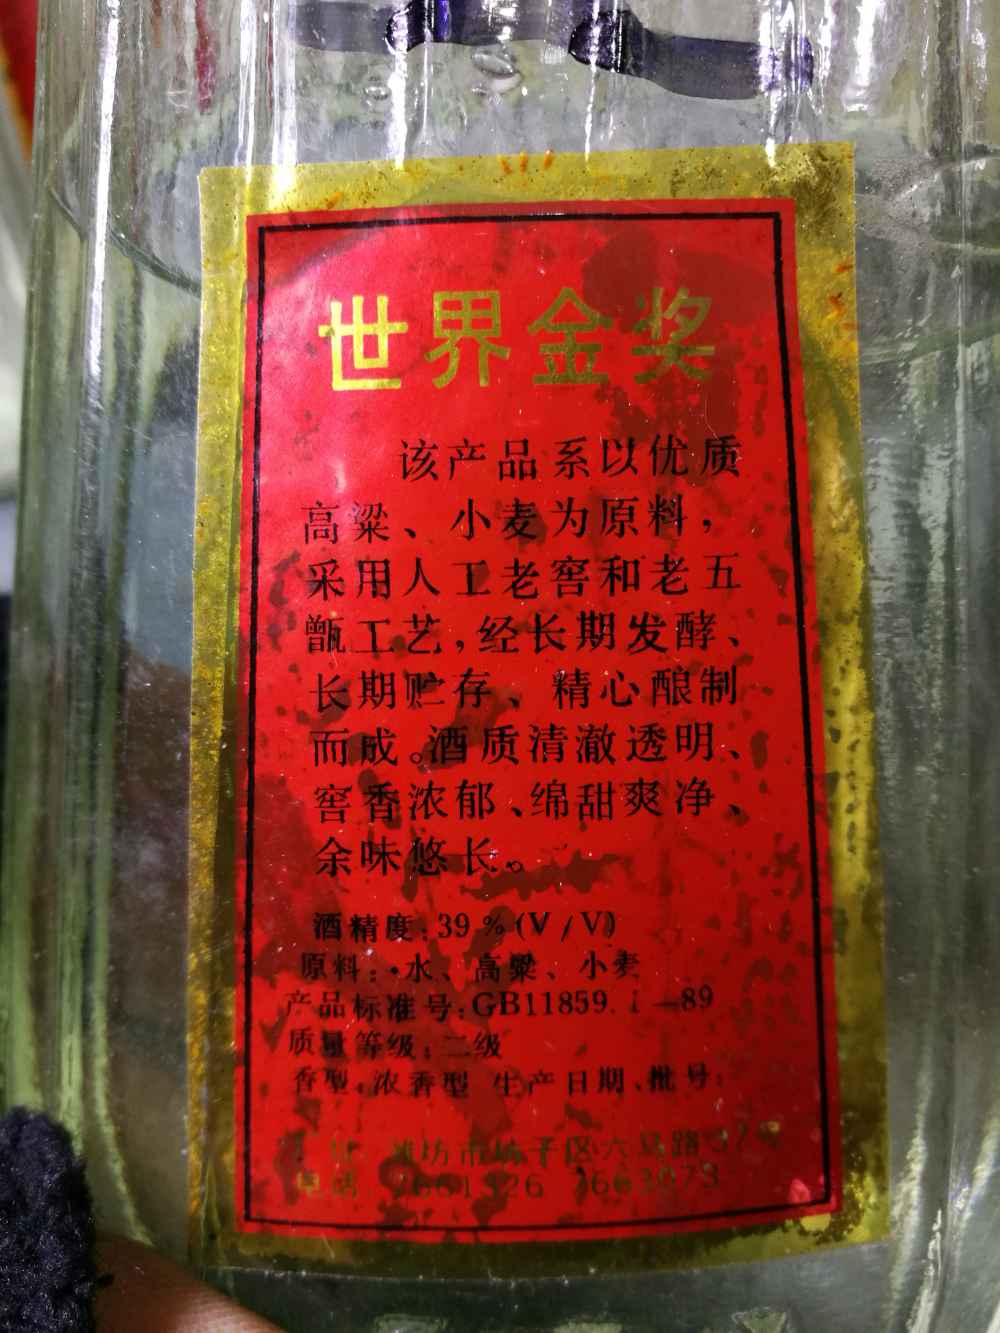 世界金奖
该产品系以优质
高粱、小麦为原料，
采用人工老窖和老五
甑工艺，经长期发酵、
长期贮存、精心酿制
而成。酒质清澈透明、
窖香浓郁、绵甜爽净、
余味悠长。
酒精度：39％(V/V)
原料：水、高粱、小麦
产品标准号：GB11859.1—89
质量等级：二级
香型：浓香型 生产日期、批号：
潍坊市坊子区六马路37号
电话 7661326 7663073